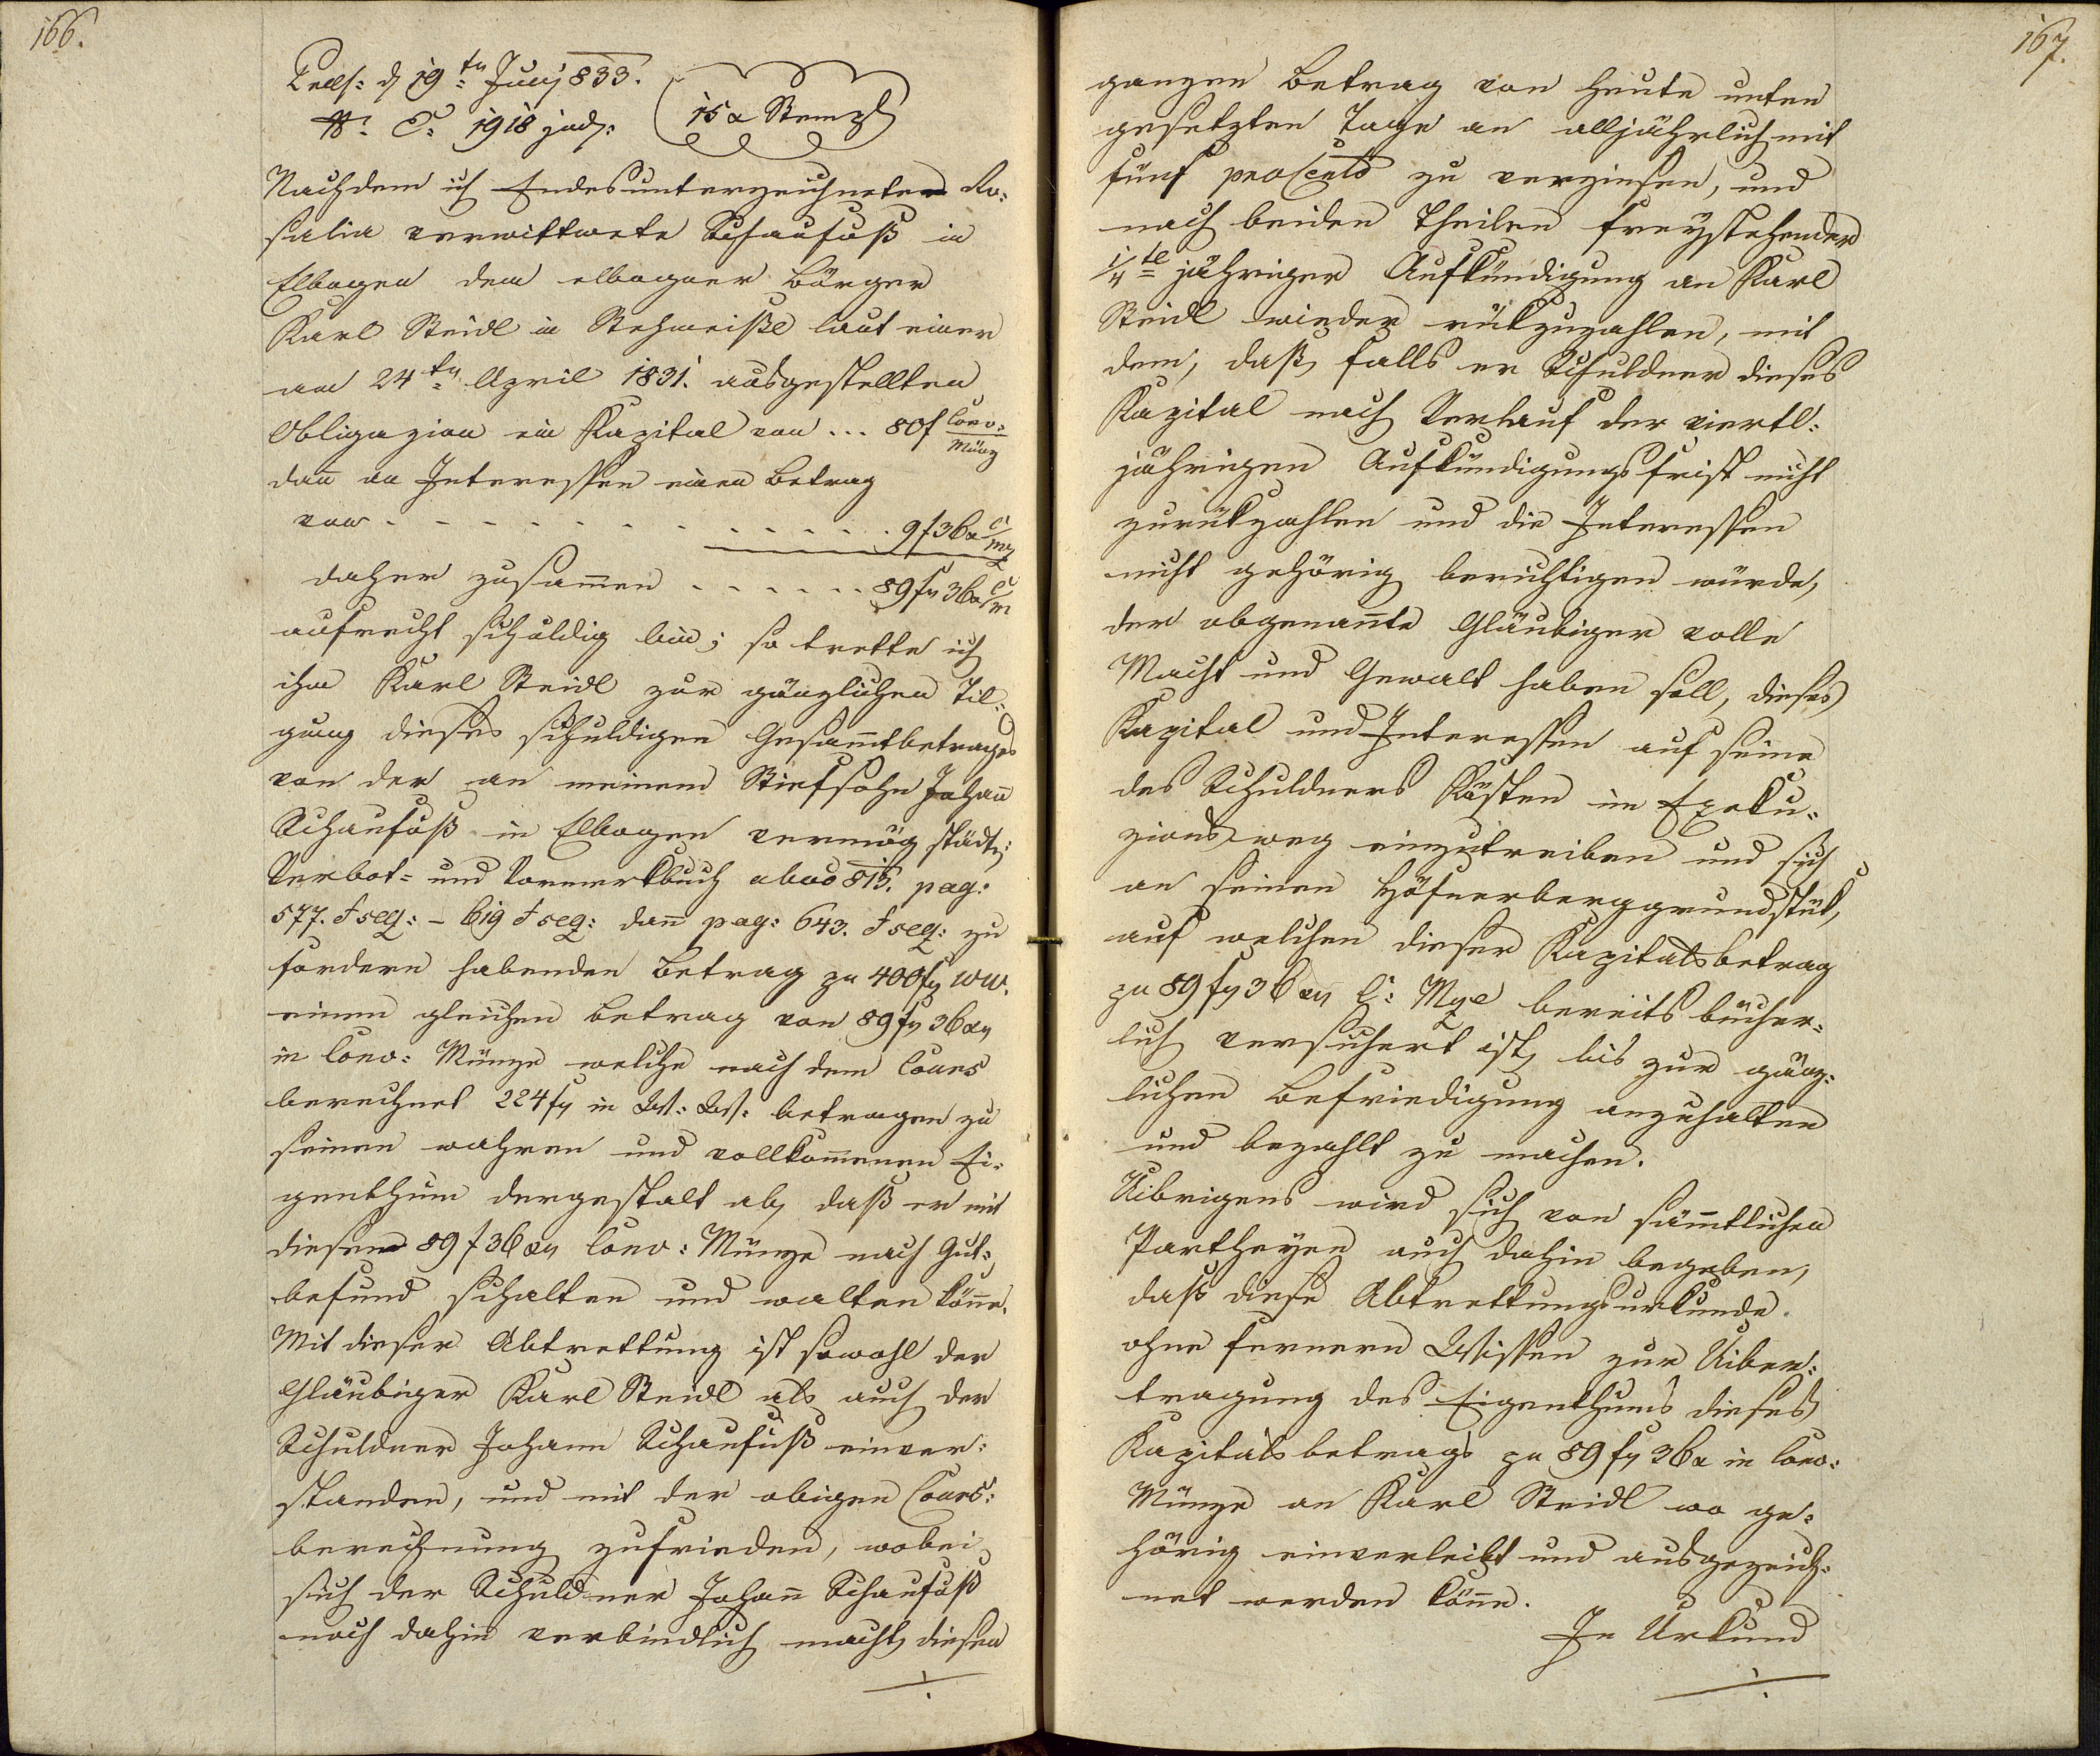 166.
Praes: d 19ten Juny 833.
N: E: 1918 jud:
15 x Stempl
Nachdem ich Endesunterzeichneter Ro-
salia verwittwete Schaufuß in
Elbogen dem elbogner Bürger
Karl Steidl in Stehmeißl laut einer
am 24ten April 1831. ausgestellten
Obligazion ein Kapital von ... 80f Conv:
Münz
dan̄ an Interessen einen Betrag
von . . . . . . . . . . . 9f 36x C/Mz
daher zusam̄en . . . . . . 89f 36x C/M
aufrecht schuldig bin; so trette ich
ihm Karl Steidl zur gänzlichen Til-
gung dieses schuldigen Gesam̄tbetrages
von der an meinem Stiefsohn Johan̄
Schaufuß in Elbogen vermög städt:
Verbot- und Vormerkbuch abao 815. pag:
577. f seq: - 619 f seq: dan̄ pag: 643. f seq: zu
fordern habenden Betrag zu 400f WW.
einen gleichen Betrag von 89f 36x
in Conv: Münze welche nach dem Cours
berechnet 224f in W: W: betragen zu
seinen wahren und vollkom̄enen Ei-
genthum dergestalt ab, daß er mit
diesem 89f 36x Conv: Münze nach Gut-
befund schalten und walten kön̄e.
Mit dieser Abtrettung ist sowohl der
Gläubiger Karl Steidl als auch der
Schuldner Johann Schaufuß einver-
standen, und mit der obigen Cours-
berechnung zufrieden, wobei
sich der Schuldner Johan̄ Schaufuß
noch dahin verbindlich macht, diesen
./.
167.
ganzen Betrag von heute unten
gesetzten Tage an alljährlich mit
fünf procento zu verzinsen, und
nach beiden Theilen freystehender
1/4tl jähriger Aufkündigung an Karl
Steidl wieder rükzuzahlen, mit
dem, daß, falls er Schuldner dieses
Kapital nach Verlauf der viertl-
jährigen Aufkündigungsfrist nicht
zurükzahlen und die Interessen
nicht gehörig berichtigen würde,
der obgenan̄te Gläubiger volle
Macht und Gewalt haben soll, dieses
Kapital und Interessen auf seine
des Schuldners Kösten im Exeku-
zionsweg einzutreiben und sich
an seinen Höfnerberggrundstük,
auf welchen dieser Kapitalsbetrag
zu 89f 36x C: Mze bereits bücher-
lich versichert ist, bis zur gänz-
lichen Befriedigung anzuhalten
und bezahlt zu machen.
Uibrigens wird sich von säm̄tlichen
Partheyen auch dahin begeben,
daß diese Abtrettungsurkunde
ohne fernern Wissen zur Uiber-
tragung des Eigenthums dieses
Kapitalsbetrags zu 89f 36x in Conv:
Münze an Karl Steidl wo ge-
hörig einverleibt und ausgezeich-
net werden kön̄e.
In Urkund
./.